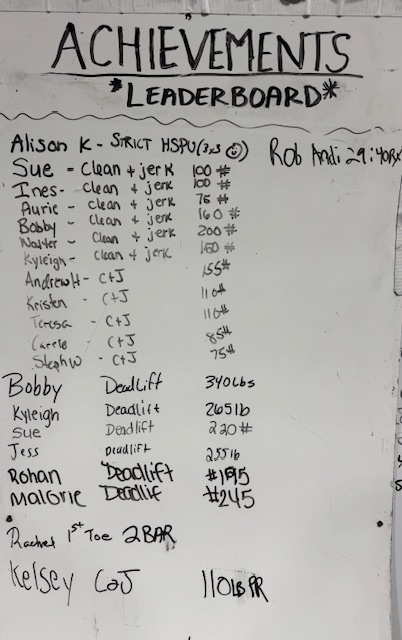 ACHIEVEMENTS
*LEADERBOARD*
Alison K - STRICT HSPU (3x3 ☺) Rob Andi 29:40RX
Sue - Clean + jerk 100 #
Ines - Clean + jerk 100 #
Aurie - Clean + jerk 75 #
Bobby - Clean + jerk 160 #
Walter - Clean + jerk 200 #
Kyleigh - Clean + jerk 150 #
Andrew H - C+J 155#
Kristen - C+J 110#
Teresa - C+J 110#
Carrie - C+J 85#
Steph W - C+J 75#
Bobby Deadlift 340lbs
Kyleigh Deadlift 265lb
Sue Deadlift 220#
Jess deadlift 255lb
Rohan Deadlift #195
Malorie Deadlif #245
Rachel 1st Toe 2BAR
Kelsey C&J 110LB PR